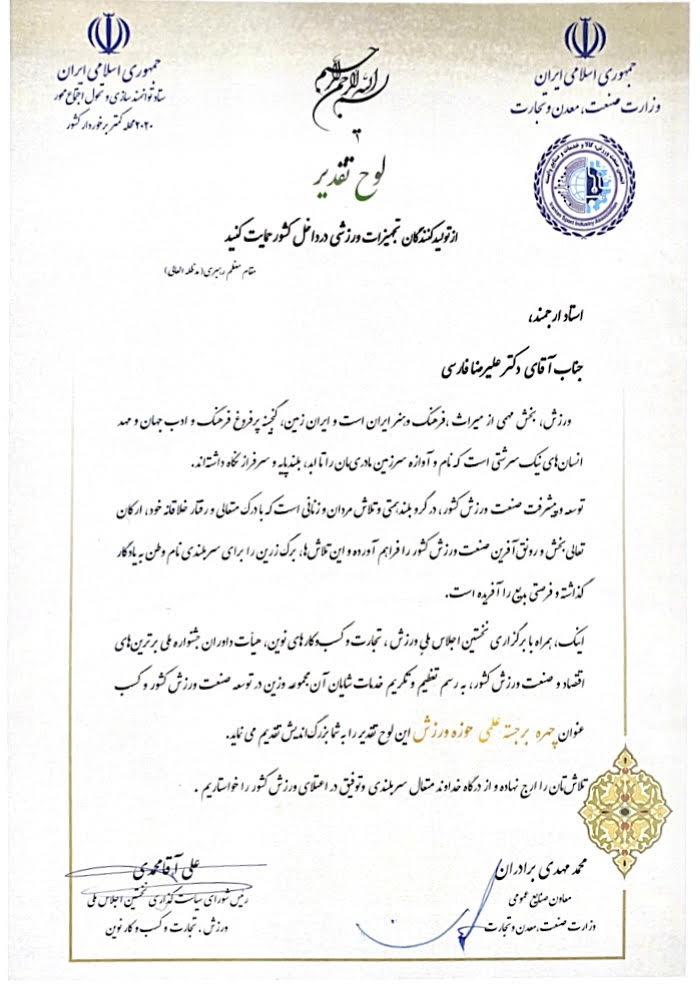 جمهوری اسلامی ایران
وزارت صنعت، معدن و تجارت
جمهوری اسلامی ایران
ستاد توانمندسازی و تحول اجتماع محور
۲۰۲۰ محله کمتر برخوردار کشور
بسم الله الرحمن الرحیم
انجمن صنعت ورزش، کالا و خدمات و صنایع وابسته
Iranian Sport Industry Association
لوح تقدیر
از تولیدکنندگان تجهیزات ورزشی در داخل کشور حمایت کنید
مقام معظم رهبری (مدظله العالی)
استاد ارجمند،
جناب آقای دکتر علیرضا فارسی
ورزش، بخش مهمی از میراث ،فرهنگ و هنر ایران است و ایران زمین، گنجینه پرفروغ فرهنگ و ادب جهان و مهد
انسان‌های نیک سرشتی است که نام و آوازه سرزمین مادری‌مان را تا ابد، بلندپایه و سرفراز نگاه داشته‌اند.
توسعه و پیشرفت صنعت ورزش کشور، در گرو بلندهمتی و تلاش مردان و زنانی است که با درک متعالی و رفتار خلاقانه خود، ارکان
تعالی بخش و رونق آفرین صنعت ورزش کشور را فراهم آورده و این تلاش‌ها، برگ زرین را برای سربلندی نام وطن به یادگار
گذاشته و فرصتی بدیع را آفریده است.
اینک، همراه با برگزاری نخستین اجلاس ملی ورزش ، تجارت و کسب و کارهای نوین، هیأت داوران جشنواره ملی برترین‌های
اقتصاد و صنعت ورزش کشور، به رسم تعظیم و تکریم خدمات شایان آن مجموعه وزین در توسعه صنعت ورزش کشور و کسب
عنوان چهره برجسته علمی حوزه ورزش این لوح تقدیر را به شما بزرگ اندیش تقدیم می نماید.
تلاش‌تان را ارج نهاده و از درگاه خداوند متعال سربلندی وتوفیق در اعتلای ورزش کشور را خواستاریم .
محمد مهدی برادران
معاون صنایع عمومی
وزارت صنعت، معدن و تجارت
علی آقامحمدی
رئیس شورای سیاست گذاری نخستین اجلاس ملی
ورزش ، تجارت و کسب و کار نوین